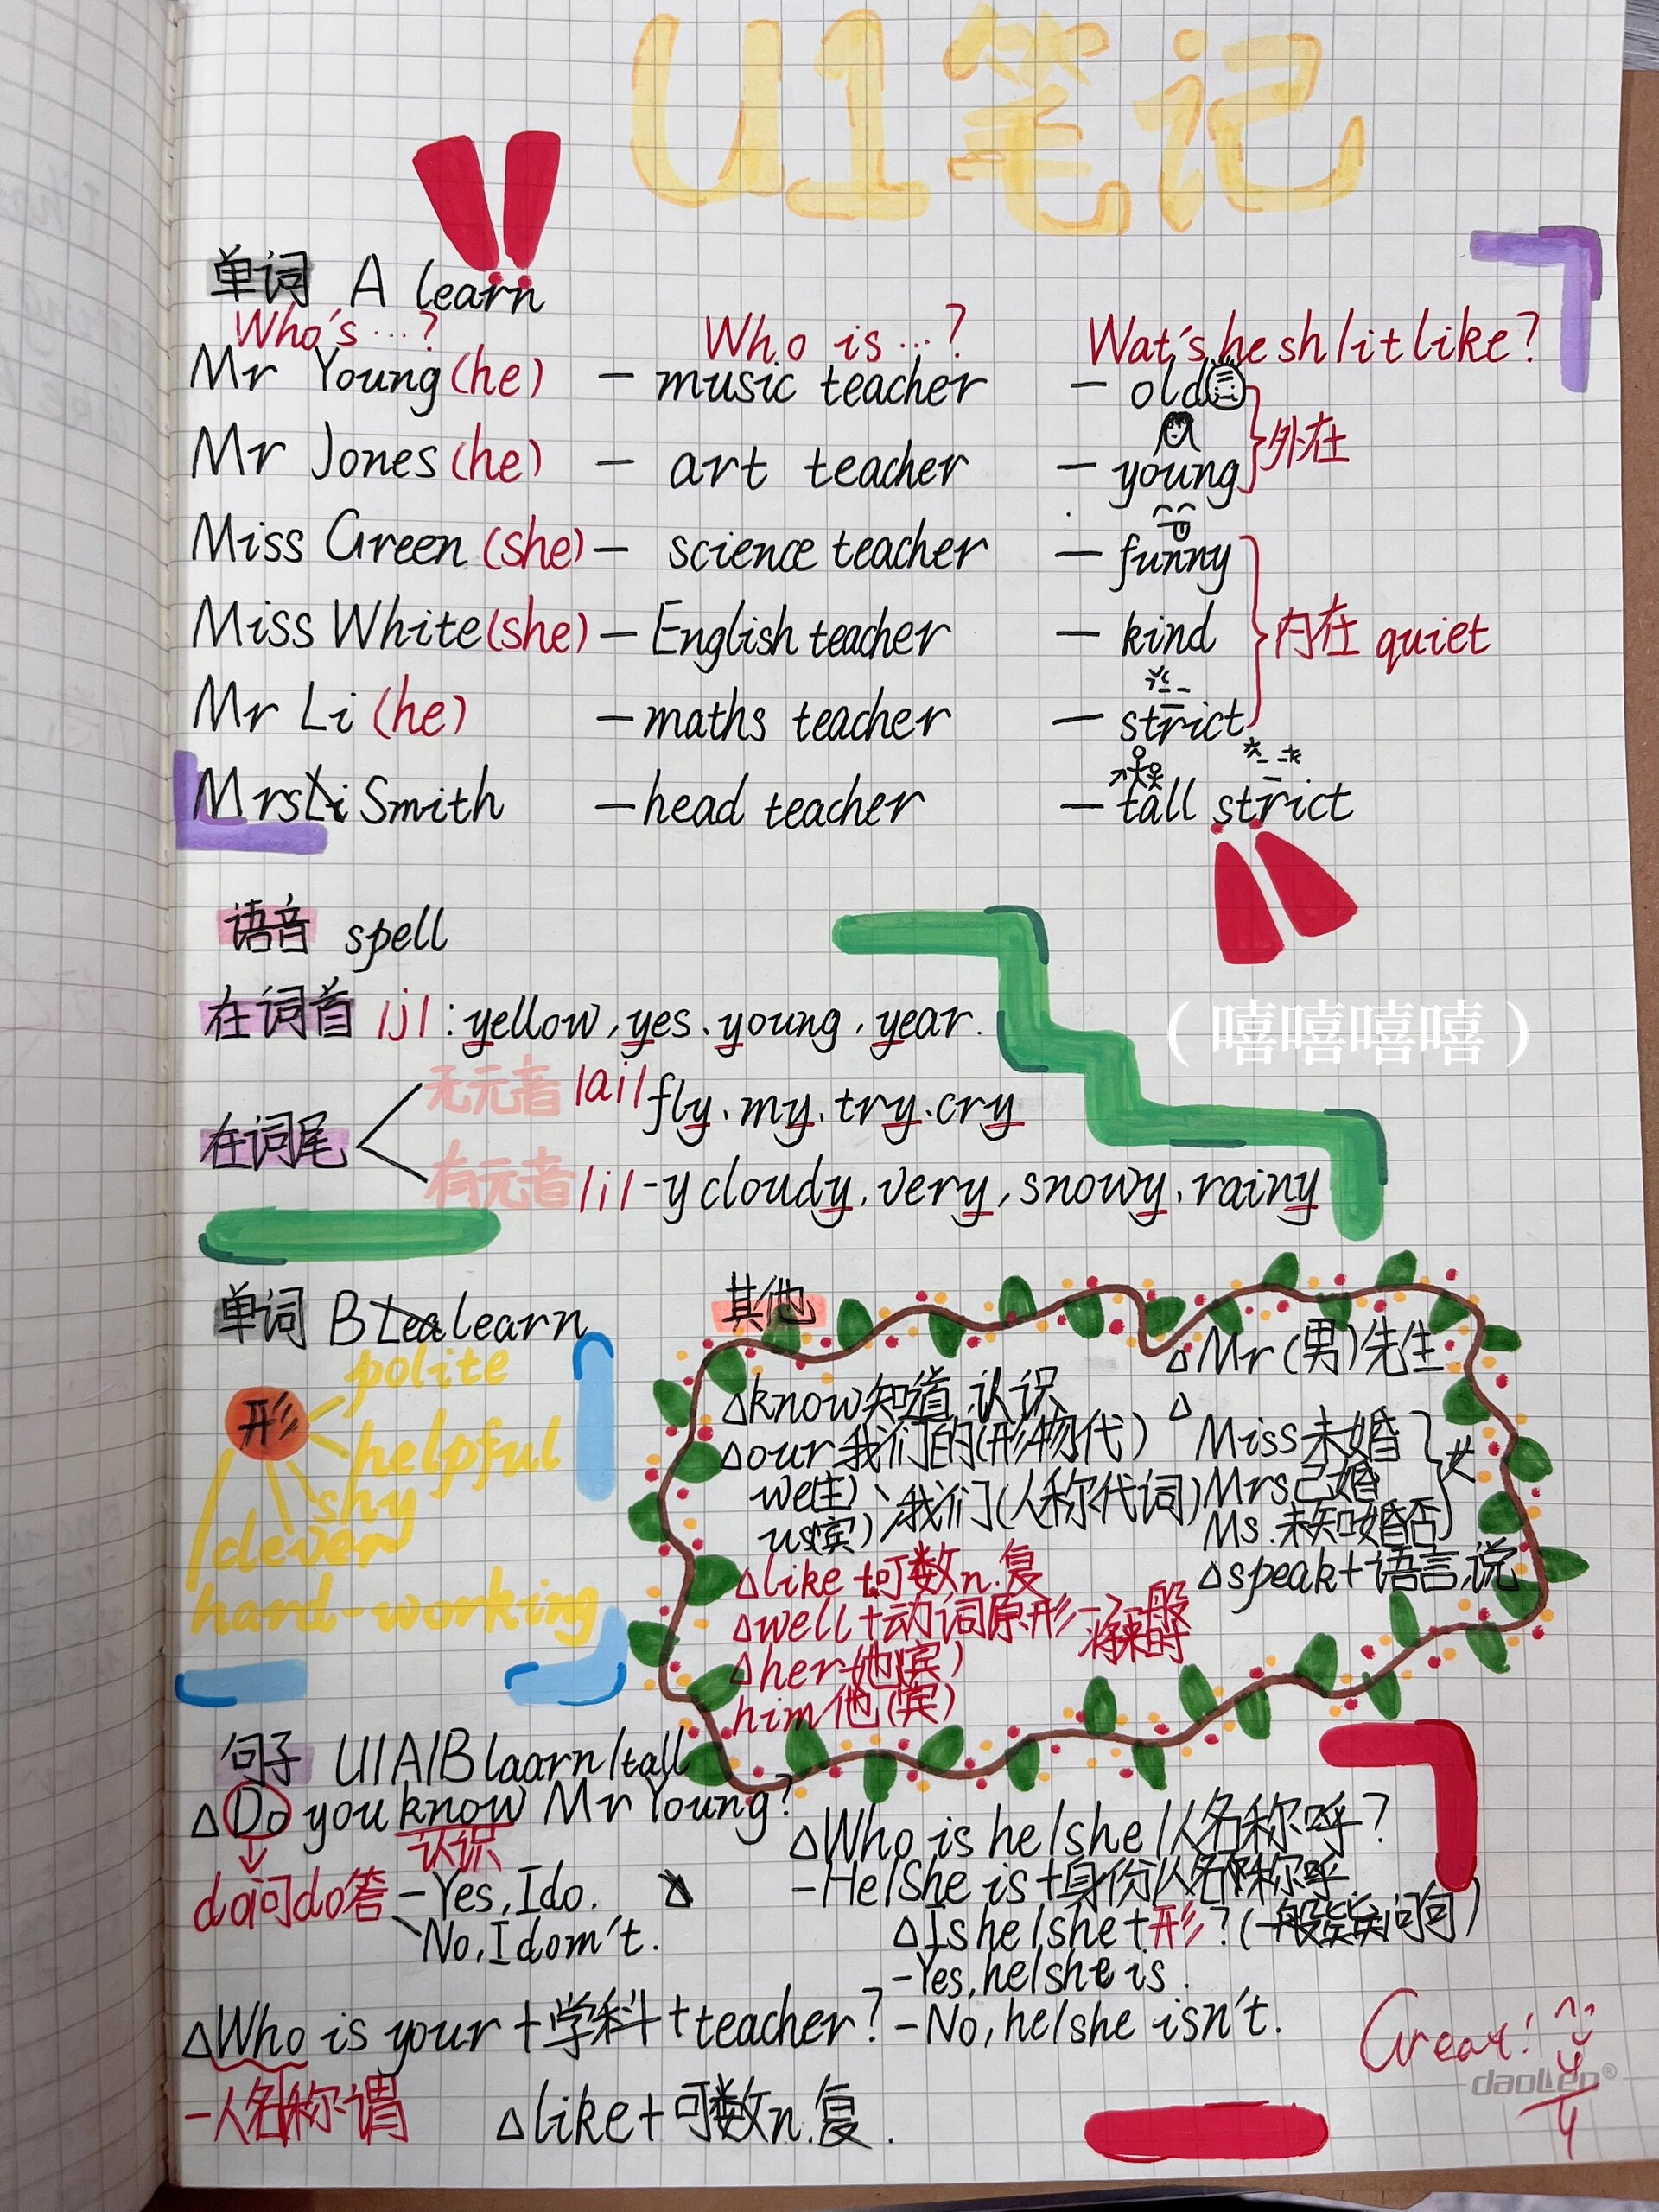 U1笔记
单词 A learn
Who's…? Who is…? Wat's he sh/it like?
Mr Young (he) — music teacher — old
外在
Mr Jones (he) — art teacher — young
Miss Green (she) — science teacher — funny
Miss White (she) — English teacher — kind
内在 quiet
Mr Li (he) — maths teacher — strict
Mrs Li Smith — head teacher — tall strict
语音 spell
在词首 /j/ : yellow, yes、young, year.
(嘻嘻嘻嘻)
在词尾
无元音 /ai/ fly. my. try. cry
有元音 /i/ -y cloudy, very, snowy, rainy
单词 B Lea learn
形
polite
helpful
shy
clever
hard-working
其他
△know知道,认识
△our我们的(形物代)
we(主)
us(宾)
我们(人称代词)
△like+可数n.复
△well+动词原形→一般将来时
△her她(宾)
him他(宾)
△Mr (男)先生
△
Miss未婚
Mrs已婚
Ms.未知婚否
女
△speak+语言,说
句子 U1A/B laarn/tall
△Do you know Mr Young?
认识
do问do答 -Yes, I do.
-No, I dom't.
△Who is your +学科+teacher?
-人名称谓
△Who is he/she/人名称呼?
-He/She is+身份/人名称呼
△Is he/she+形?(一般疑问句)
-Yes, he/she is.
-No, he/she isn't.
△like+可数n.复.
Great!
daolen®